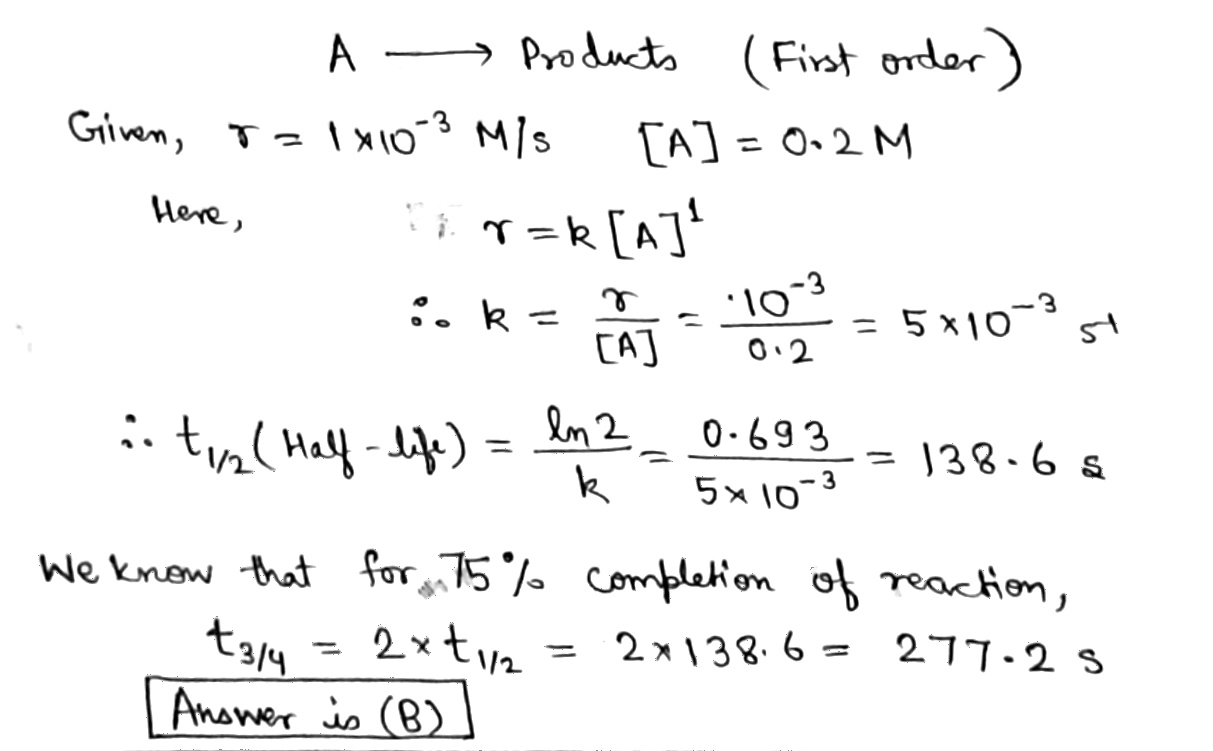 A ⟶ Products (First order)
Given, r = 1×10⁻³ M/s [A] = 0.2 M
Here, r = k[A]¹
∴ k = r/[A] = ·10⁻³/0.2 = 5×10⁻³ s⁻¹
∴ t₁/₂ (Half-life) = ln 2/k = 0.693/5×10⁻³ = 138.6 s
We know that for 75% completion of reaction,
t₃/₄ = 2×t₁/₂ = 2×138.6 = 277.2 s
Answer is (B)